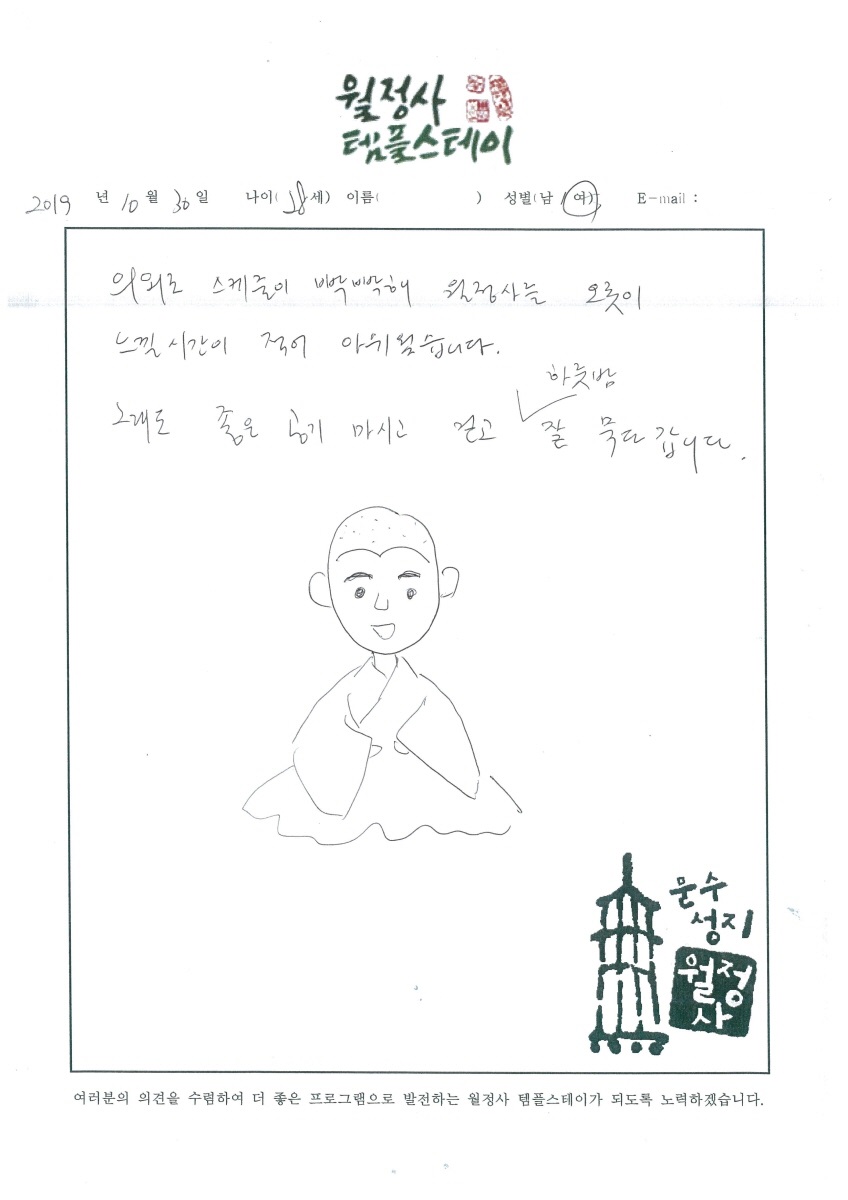 월정사
템플스테이
2019 년 10 월 30 일 나이( 세) 이름( ) 성별(남 / 여) E-mail :
의외로 스케줄이 빡빡해 월정사를 오롯이
느낄 시간이 적어 아쉬웠습니다.
하룻밤
그래도 좋은 공기 마시고 걷고 잘 묵다 갑니다.
문수
성지
월정
사
여러분의 의견을 수렴하여 더 좋은 프로그램으로 발전하는 월정사 템플스테이가 되도록 노력하겠습니다.